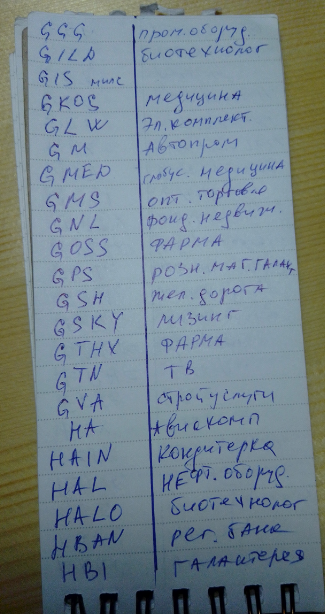 GGG пром.оборуд.
GILD биотехнолог
GIS милс
GKOS медицина
GLW Эл.комплект.
GM Автопром
GMED глобус. медицина
GMS опт. торговля
GNL фонд.недвиж.
GOSS ФАРМА
GPS РОЗН.МАГ.ГАЛАНТ
GSH жел.дорога
GSKY лизинг
GTHX ФАРМА
GTN ТВ
GVA стройуслуги
HA Авиакомп
HAIN Кондитерка
HAL НЕФТ.оборуд.
HALO биотехнолог
HBAN рег. банк
HBI ГАЛАНТЕРЕЯ